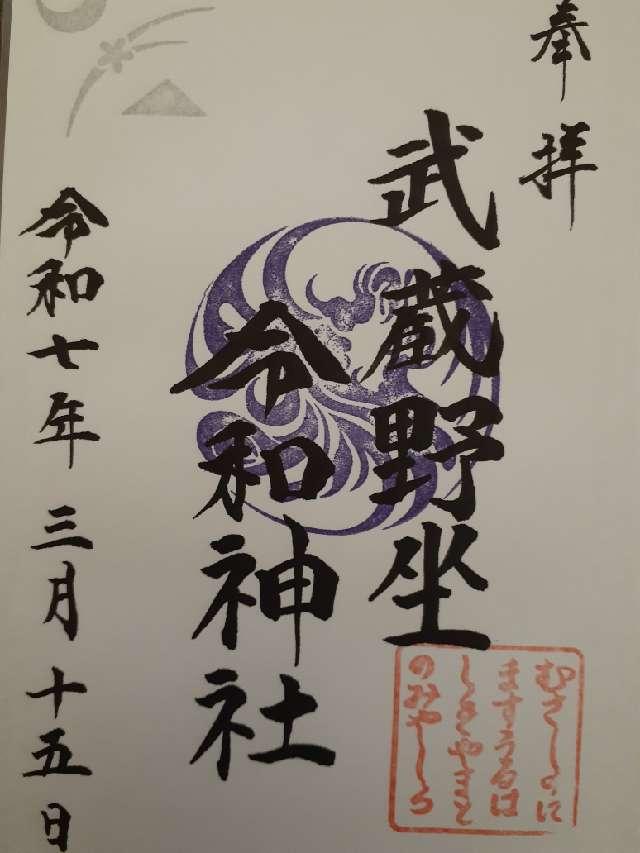 奉拝
武蔵野坐
令和神社
令和七年三月十五日
むさしのに
ますうるは
しきやまと
のみやしろ